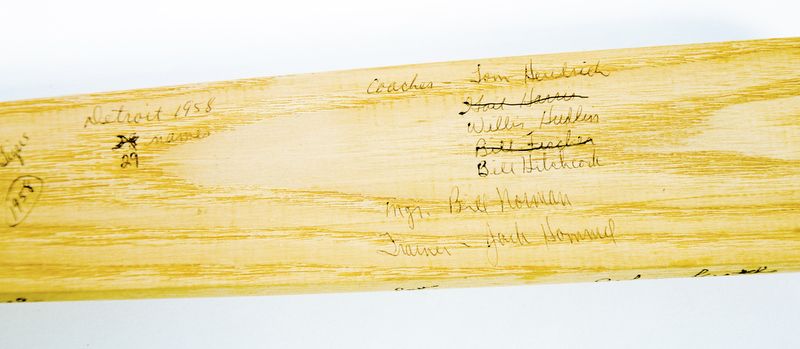 Tigers
1958
Detroit 1958
names
29
Coaches - Tom Henrich
Willis Hudlin
Bill Fischer
Bill Hitchcock
Mgr. Bill Norman
Trainer - Jack Hommel